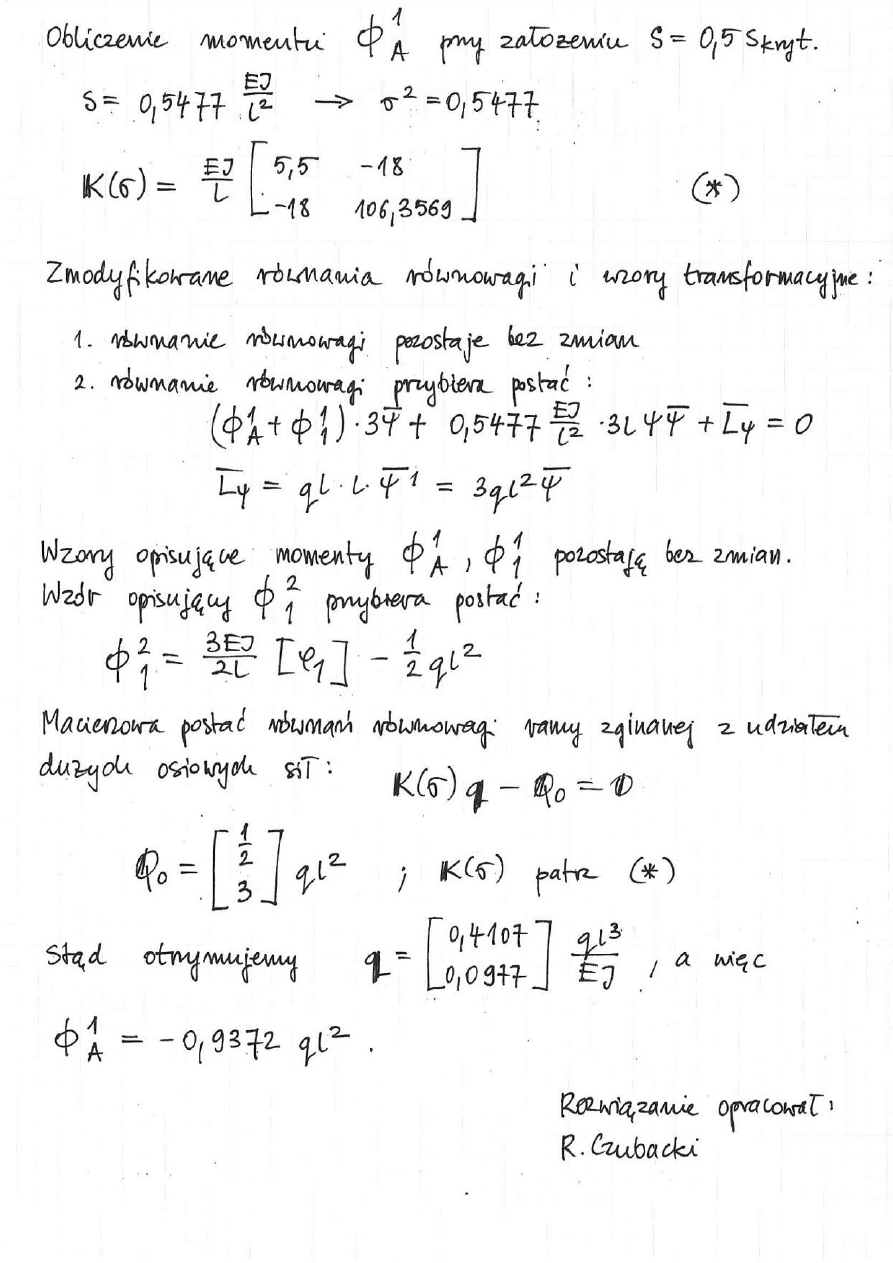 Obliczenie momentu Φ_A^1 przy założeniu S = 0,5 Skryt.
S = 0,5477 EJ/l² → σ² = 0,5477
K(σ) = EJ/L [5,5 -18; -18 106,3569] (*)
Zmodyfikowane równania równowagi i wzory transformacyjne:
1. równanie równowagi pozostaje bez zmian
2. równanie równowagi przybiera postać:
(Φ_A^1 + Φ_1^1)·3Ψ̅ + 0,5477 EJ/l² · 3L ΨΨ̅ + L̅ψ = 0
L̅ψ = ql·L·Ψ̅^1 = 3ql²Ψ̅
Wzory opisujące momenty Φ_A^1, Φ_1^1 pozostają bez zmian.
Wzór opisujący Φ_1^2 przybiera postać:
Φ_1^2 = 3EJ/2L [φ₁] - 1/2 ql²
Macierzowa postać równań równowagi ramy zginanej z udziałem
dużych osiowych sił: K(σ) q - Q₀ = 0
Q₀ = [1/2; 3] ql² ; K(σ) patrz (*)
Stąd otrzymujemy q = [0,4107; 0,0977] ql³/EJ, a więc
Φ_A^1 = -0,9372 ql².
Rozwiązanie opracował:
R. Czubacki